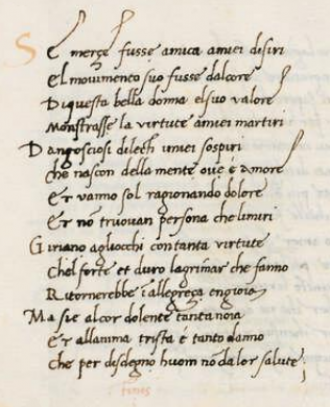 Se merçe fusse amica amiei disiri
El movimento suo fusse dalcore
Di questa bella donna el suo valore
Monstrasse la virtute amiei martiri
Dangosciosi dilecti imiei sospiri
Che nascon della mente ove é amore
Et vanno sol ragionando dolore
Et nō truovan persona che limiri
Giriano agliocchi con tanta virtute
Chel forte et duro lagrimar che fanno
Ritornerebbe ī allegreça engioia
Ma sie al cor dolente tanta noia
Et allanima trista é tanto danno
Che per disdegno huom nō dà lor salute;